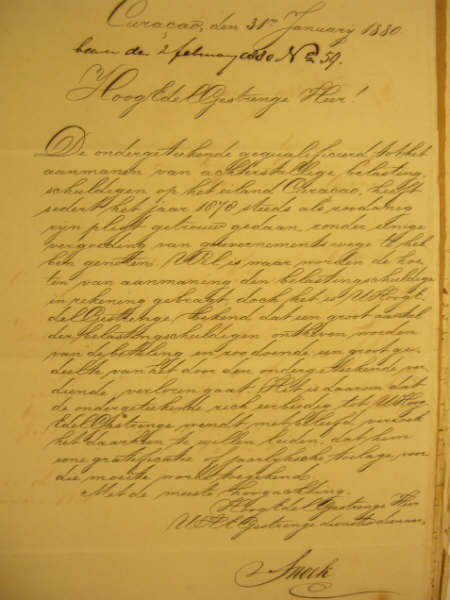 Curaçao, den 31en January 1880
besw. den 2 february 1880 No 59.
HoogEdelGestrenge Heer!
De ondergeteekende gequalificeerd tot het
aanmanen van achterstallige belasting-
schuldigen op het eiland Curacao, heeft
sedert het jaar 1878 steeds als zoodanig
zijn pligt getrouw gedaan, zonder eenige
vergoeding van gouvernementswege te heb
ben genoten. Wel is waar worden de kos-
ten van aanmaning den belastingschuldige
in rekening gebragt, doch het is UHoogE-
delGestrenge bekend dat een groot aantal
der belastingschuldigen ontheven worden
van de betaling en zoodoende een groot ge-
deelte van het door den ondergeteekende ver
diende verloren gaat. Het is daarom dat
de ondergeteekende zich eerbiedig tot UHoog
EdelGestrenge wendt met beleefd verzoek
het daarheen te willen leiden, dat hem
eene gratificatie of jaarlijksche toelage voor
die moeite worde toegekend.
Met de meeste hoogachting.
HoogEdelGestrenge Heer
UHEGestrenge dienstw. dienaar,
Snoek